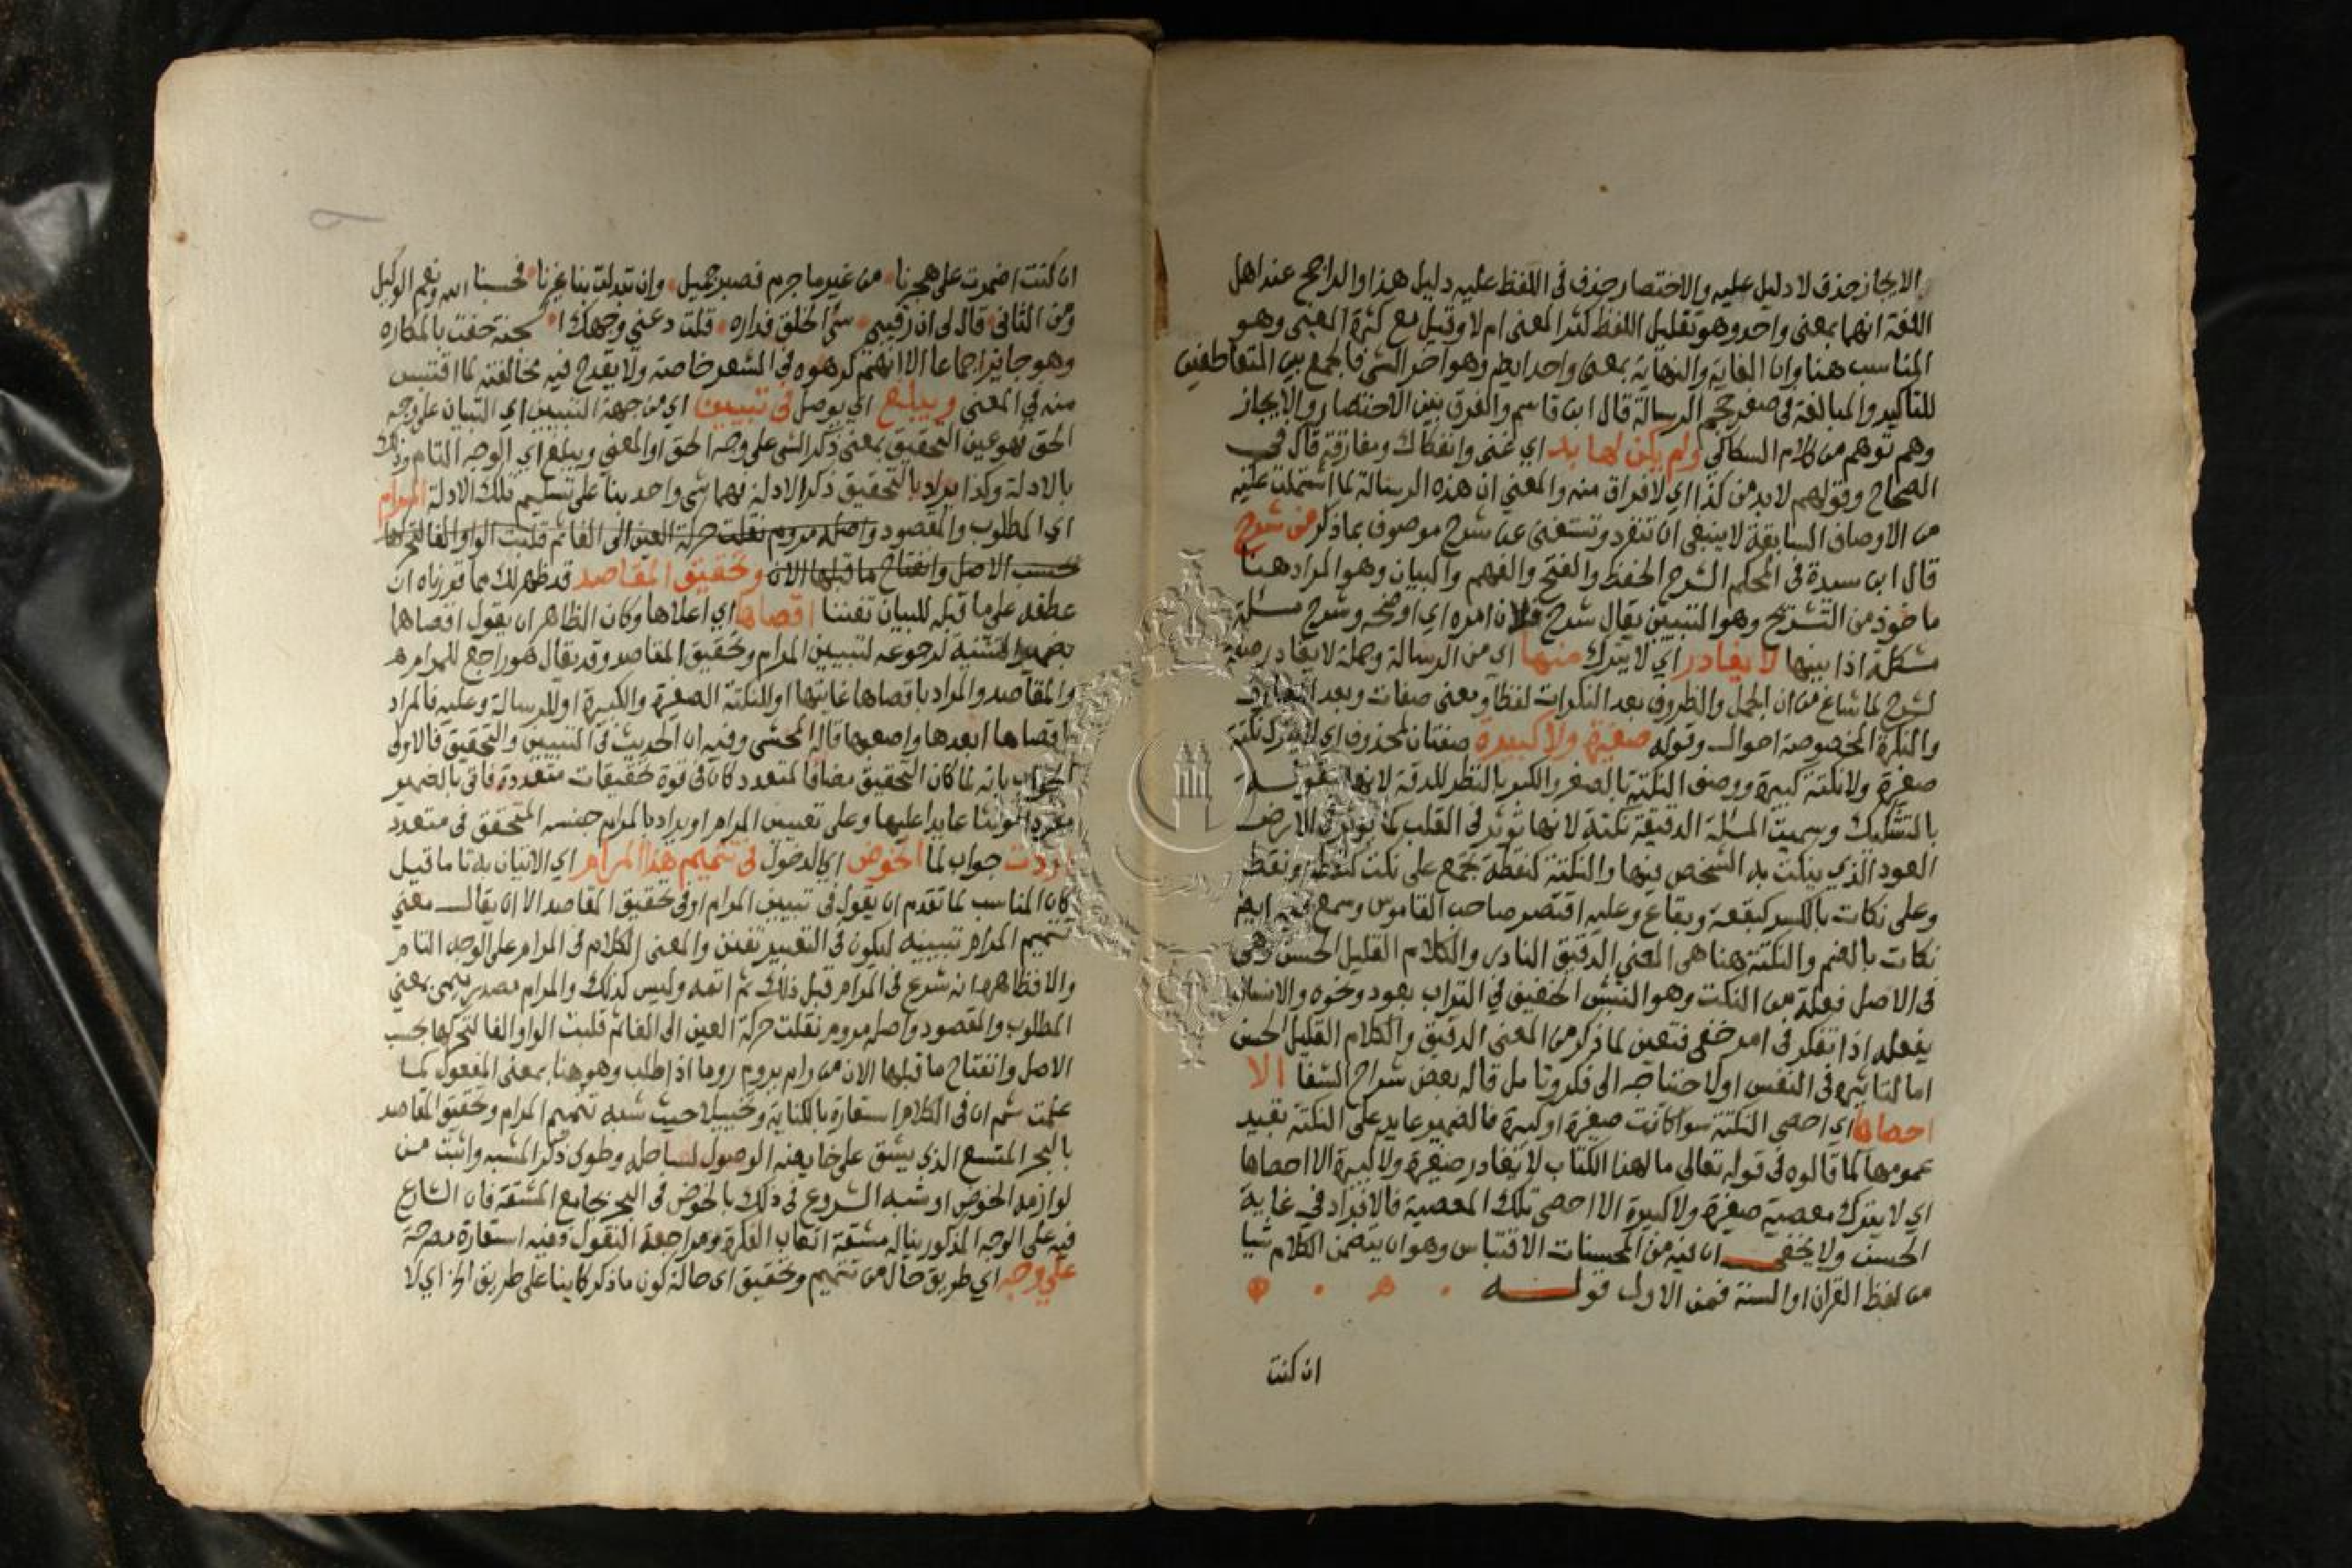 الايجاز حذف لا دليل عليه والاختصار حذف في اللفظ عليه دليل هذا والراجح عند اهل
اللغة انهما بمعنى واحد وهو تقليل اللفظ كثر المعنى ام لا وقيل مع كثرة المعنى وهو
المناسب هنا وان الغاية والنهاية بمعنى واحد ايضا وهو اخر الشي فالجمع بين المتعاطفين
للتاكيد والمبالغة في صغر حجم الرسالة قال ابن قاسم والفرق بين الاختصار والايجاز
وهم توهم من كلام السكاكي ولم يكن لها بد اي غنى وانفكاك ومفارقة قال في
الصحاح وقولهم لا بد من كذا اي لا فراق منه والمعنى ان هذه الرسالة لما اشتملت عليه
من الاوصاف السابقة لا ينبغي ان تنفرد وتستغنى عن شرح موصوف بما ذكر من شرح
قال ابن سيدة في المحكم الشرح الحفظ والفتح والفهم والبيان وهو المراد هنا
ماخوذ من التشريح وهو التبيين يقال شرح فلان امره اي اوضحه وشرح مسئلة
مشكلة اذا بينها لا يغادر اي لا يترك منها اي من الرسالة وجملة لا يغادر صفة
لشرح لما شاع من ان الجمل والظروف بعد النكرات لفظا او معنى صفات وبعد المعارف
والنكرة المخصوصة احوال وقوله صغيرة ولا كبيرة صفتان لمحذوف اي لا يترك نكتة
صغيرة ولا نكتة كبيرة ووصف النكتة بالصغر والكبر بالنظر للدقة لانها مقولة
بالتشكيك وسميت المسئلة الدقيقة نكتة لانها تؤثر في القلب كما يؤثر في الارض
العود الذي ينكت به الشخص فيها والنكتة كنقطة تجمع على نكت كنقطة ونقط
وعلى نكات بالكسر كبقعة وبقاع وعليه اقتصر صاحب القاموس وسمع فيه ايضا
نكات بالضم والنكتة هنا هي المعنى الدقيق النادر والكلام القليل الحسن وهي
في الاصل فعلة من النكت وهو النبش الخفيف في التراب بعود ونحوه والانسان
يفعله اذا تفكر في امر خفي فتعين لما ذكر من المعنى الدقيق والكلام القليل الحسن
اما لتاثيره في النفس اولاحتياجه الى فكر وتامل قاله بعض شراح الشفا الا
احصاها اي احصى النكتة سوا كانت صغيرة او كبيرة فالضمير عايد على النكتة بقيد
عمومها كما قالوه في قوله تعالى مال هذا الكتاب لا يغادر صغيرة ولا كبيرة الا احصاها
اي لا يترك معصية صغيرة ولا كبيرة الا احصى تلك المعصية فالافراد في غاية
الحسن ولا يخفى ان فيه من المحسنات الاقتباس وهو ان يتضمن الكلام شيا
من لفظ القران او السنة فمن الاول قوله
ان كنت
ان كنت اضمرت على هجرنا من غير ما جرم فصبر جميل وان تبدلت بنا غيرنا فحسبنا الله ونعم الوكيل
ومن الثاني قال لي ان رقيبي سيئ الخلق فداره قلت دعني وجهك الجنة حفت بالمكاره
وهو جايز اجماعا الا انهم كرهوه في الشعر خاصة ولا يقدح فيه مخالفته لما اقتبس
منه في المعنى ويبلغ اي يوصل في تبيين اي من جهة التبيين اي التبيان على وجه
الحق فهو عين التحقيق بمعنى ذكر الشي على وجه الحق او المعنى ويبلغ اي الوجه التام وذلك
بالادلة وكذا يراد بالتحقيق ذكر الادلة فهما شي واحد بنا على تسليم تلك الادلة المرام
اي المطلوب والمقصود واصله مروم نقلت حركة العين الى الفا ثم قلبت الواو الفا لتحركها
بحسب الاصل وانفتاح ما قبلها الان وتحقيق المقاصد قد ظهر لك مما قررناه ان
عطفه على ما قبله للبيان تفننا اقصاها اي اعلاها وكان الظاهر ان يقول اقصاهما
بضمير التثنية لرجوعه لتبيين المرام وتحقيق المقاصد وقد يقال هو راجع للمرام
والمقاصد والمراد باقصاها غايتها او للنكتة الصغيرة والكبيرة او للرسالة وعليه فالمراد
باقصاها ابعدها واصعبها قاله المحشي وفيه ان الحديث في التبيين والتحقيق فالاولى
الجواب بانه لما كان التحقيق مضافا لمتعدد كان في قوة تحقيقات متعددة فاتى بالضمير
مفردا مؤنثا عايدا عليها وعلى تعيين المرام او يراد بالمرام جنسه المتحقق في متعدد
اردت جواب لما الخوض اي الدخول في تتميم هذا المرام اي الاتيان به تاما قيل
كان المناسب لما تقدم ان يقول في تبيين المرام او في تحقيق المقاصد الا ان يقال معنى
تتميم المرام تبيينه ليكون في التعبير تفنن والمعنى الكلام في المرام على الوجه التام
والا فظاهره انه شرع في المرام قبل ذلك ثم اتمه وليس كذلك والمرام مصدر ميمي بمعنى
المطلوب والمقصود واصله مروم نقلت حركة العين الى الفا ثم قلبت الواو الفا لتحركها بحسب
الاصل وانفتاح ما قبلها الان من رام يروم روما اذا طلب وهو هنا بمعنى المفعول كما
علمت ثم ان في الكلام استعارة بالكناية وتخييلا حيث شبه تتميم المرام وتحقيق المقاصد
بالبحر المتسع الذي يشق على خايضه الوصول لساحله وطوى ذكر المشبه واثبت من
لوازمه الخوض او شبه الشروع في ذلك بالخوض في البحر بجامع المشقة فان الشارع
فيه على الوجه المذكور يناله مشقة اتعاب الفكرة ومراجعة النقول وفيه استعارة مصرحة
على وجه اي طريق حال من تتميم وتحقيق اي حالة كون ما ذكر كاينا على طريق الخ اي لا